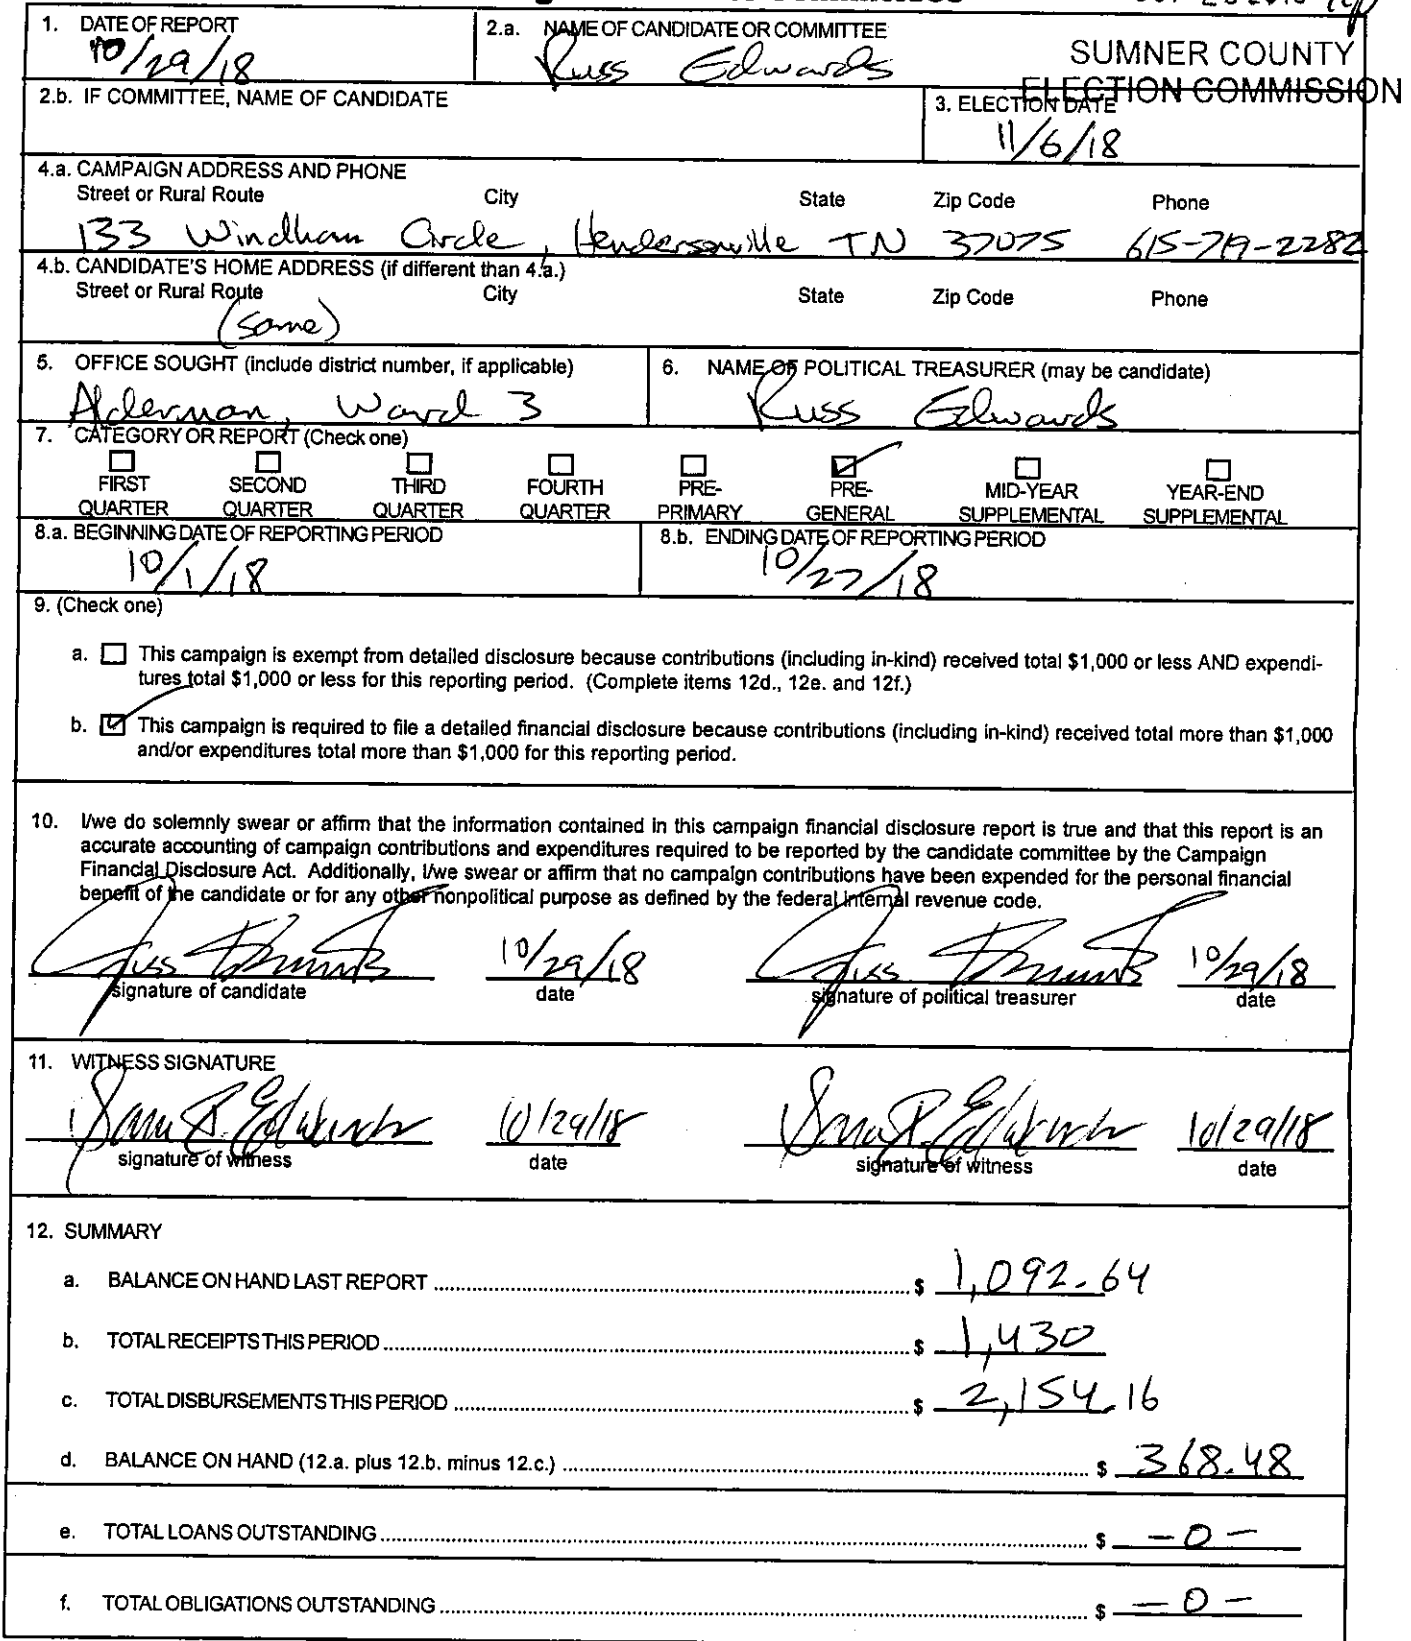 1. DATE OF REPORT
10/29/18
2.a. NAME OF CANDIDATE OR COMMITTEE
Russ Edwards
SUMNER COUNTY
ELECTION COMMISSION
2.b. IF COMMITTEE, NAME OF CANDIDATE
3. ELECTION DATE
11/6/18
4.a. CAMPAIGN ADDRESS AND PHONE
Street or Rural Route City State Zip Code Phone
133 Windham Circle, Hendersonville TN 37075 615-719-2282
4.b. CANDIDATE'S HOME ADDRESS (if different than 4.a.)
Street or Rural Route City State Zip Code Phone
(same)
5. OFFICE SOUGHT (include district number, if applicable)
Alderman, Ward 3
6. NAME OF POLITICAL TREASURER (may be candidate)
Russ Edwards
7. CATEGORY OR REPORT (Check one)
FIRST QUARTER
SECOND QUARTER
THIRD QUARTER
FOURTH QUARTER
PRE-PRIMARY
PRE-GENERAL
MID-YEAR SUPPLEMENTAL
YEAR-END SUPPLEMENTAL
8.a. BEGINNING DATE OF REPORTING PERIOD
10/1/18
8.b. ENDING DATE OF REPORTING PERIOD
10/27/18
9. (Check one)
a. This campaign is exempt from detailed disclosure because contributions (including in-kind) received total $1,000 or less AND expendi-
tures total $1,000 or less for this reporting period. (Complete items 12d., 12e. and 12f.)
b. This campaign is required to file a detailed financial disclosure because contributions (including in-kind) received total more than $1,000
and/or expenditures total more than $1,000 for this reporting period.
10. I/we do solemnly swear or affirm that the information contained in this campaign financial disclosure report is true and that this report is an
accurate accounting of campaign contributions and expenditures required to be reported by the candidate committee by the Campaign
Financial Disclosure Act. Additionally, I/we swear or affirm that no campaign contributions have been expended for the personal financial
benefit of the candidate or for any other nonpolitical purpose as defined by the federal internal revenue code.
Russ Edwards 10/29/18 Russ Edwards 10/29/18
signature of candidate date signature of political treasurer date
11. WITNESS SIGNATURE
Edwards 10/29/18 Edwards 10/29/18
signature of witness date signature of witness date
12. SUMMARY
a. BALANCE ON HAND LAST REPORT $ 1,092.64
b. TOTAL RECEIPTS THIS PERIOD $ 1,430
c. TOTAL DISBURSEMENTS THIS PERIOD $ 2,154.16
d. BALANCE ON HAND (12.a. plus 12.b. minus 12.c.) $ 368.48
e. TOTAL LOANS OUTSTANDING $ -0-
f. TOTAL OBLIGATIONS OUTSTANDING $ -0-